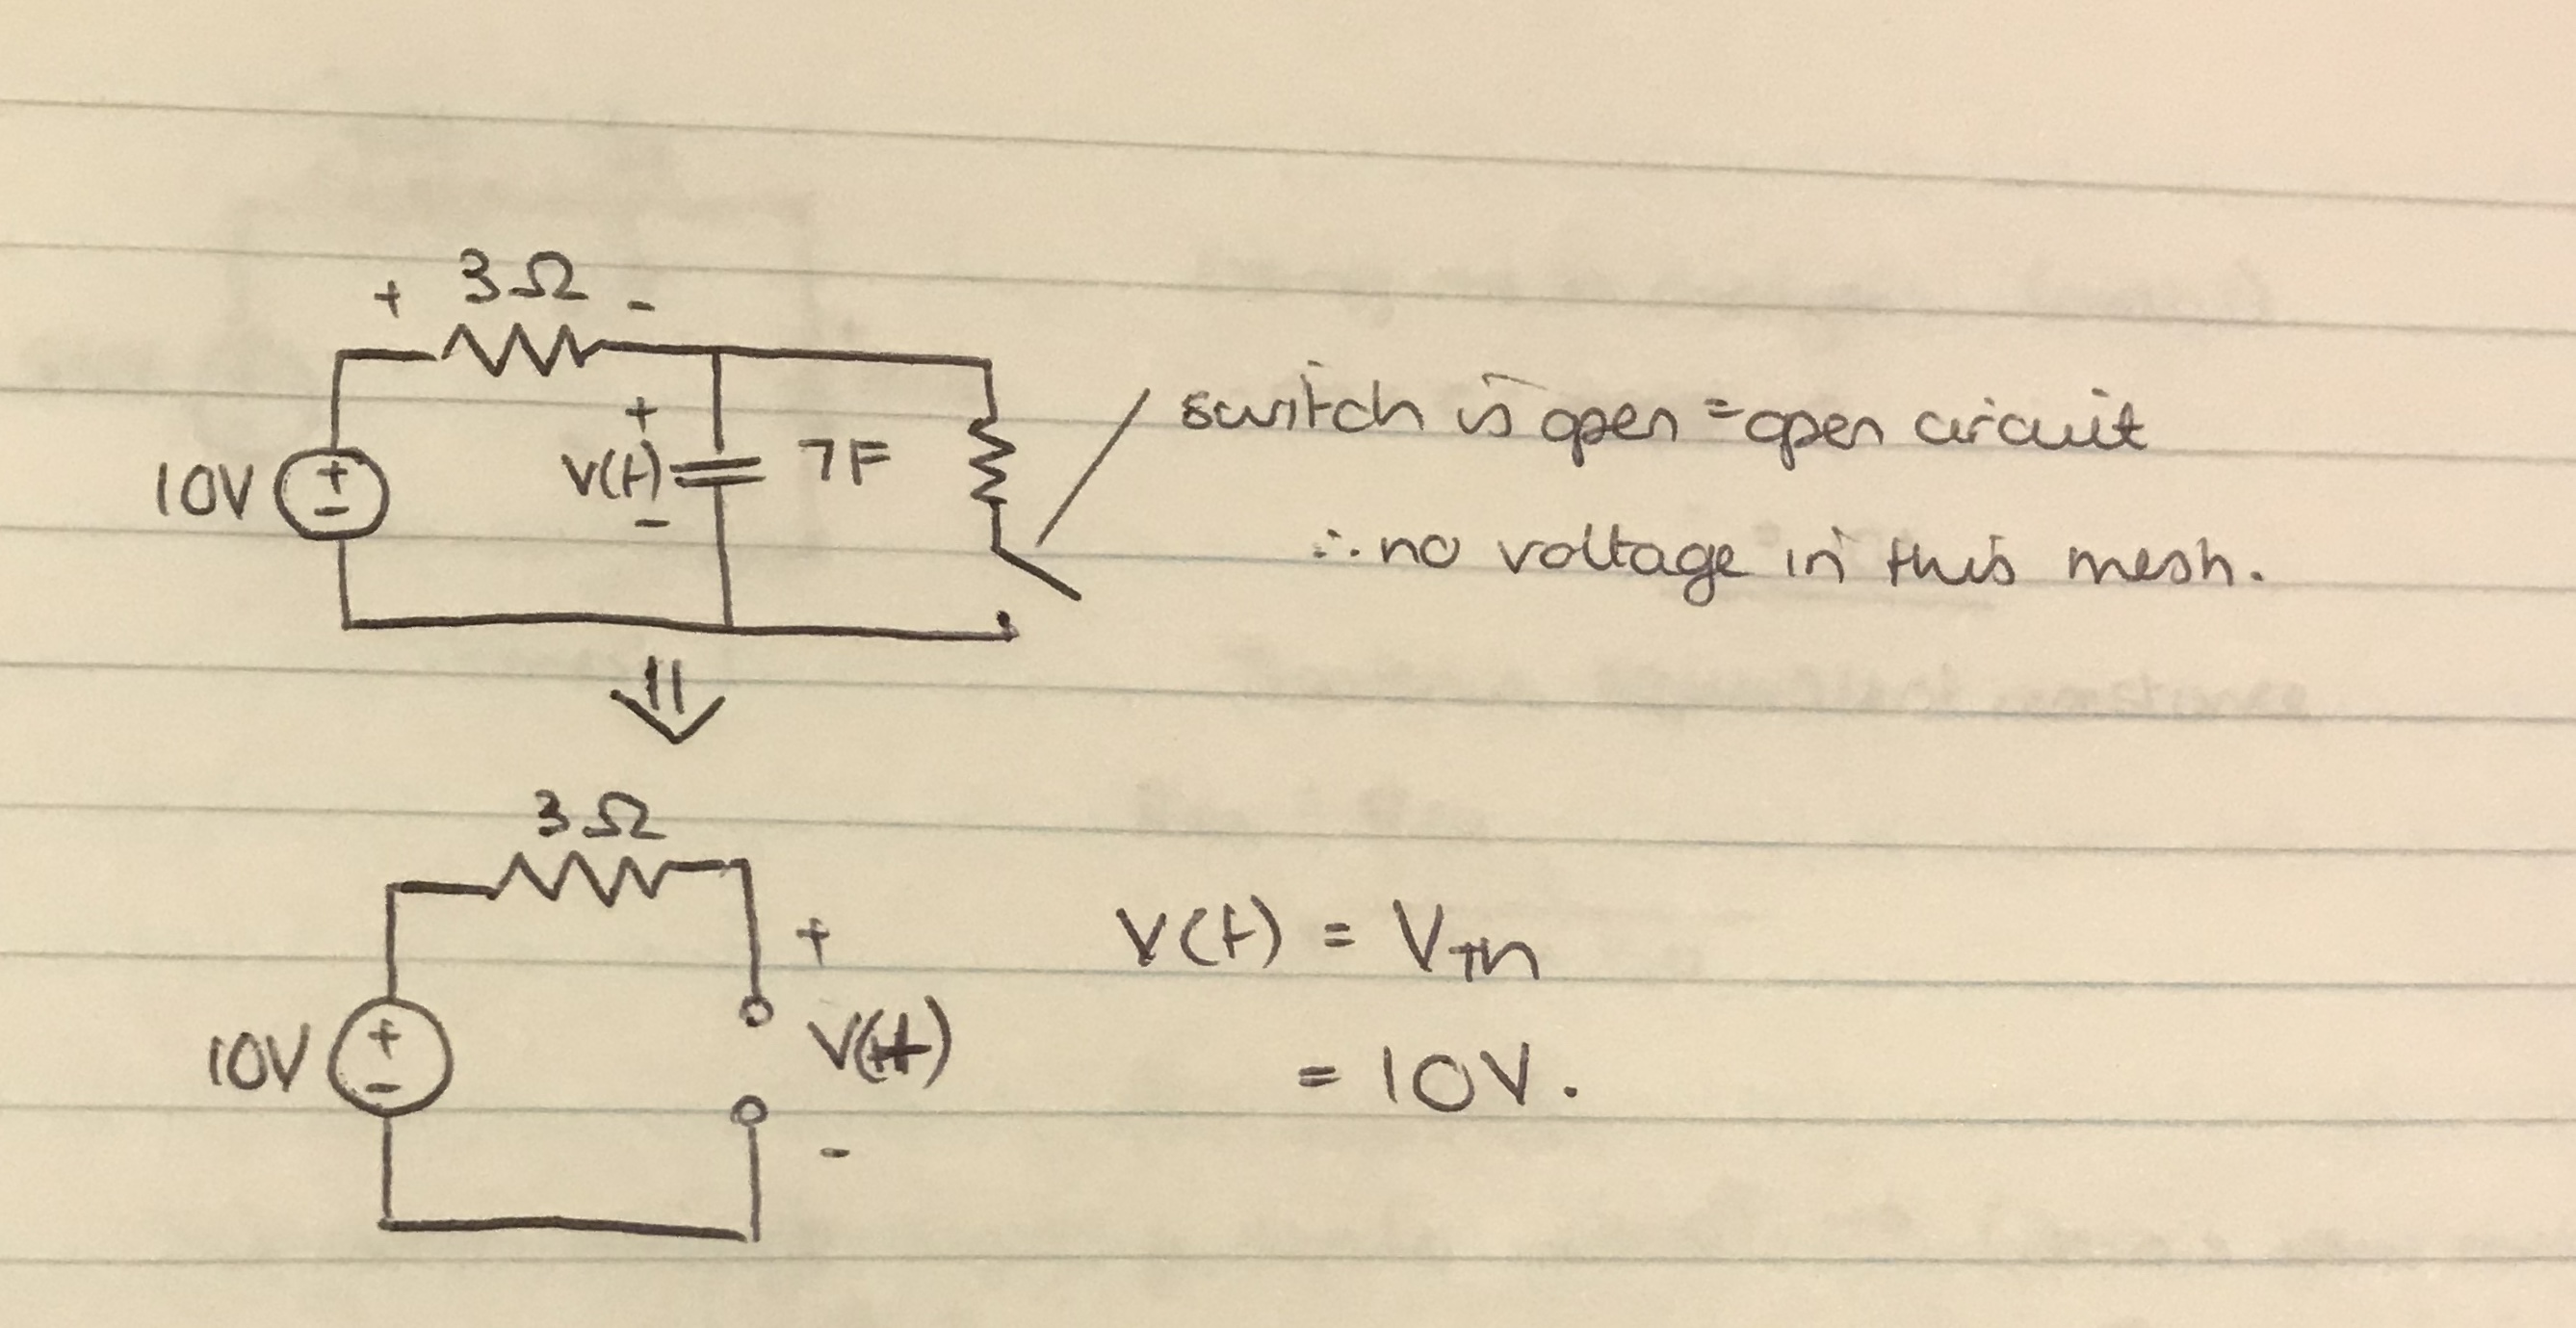 + 3Ω -
10V
+
-
+
V(t)
-
7F
switch is open = open circuit
∴ no voltage in this mesh.
3Ω
10V
+
-
+
V(t)
-
V(t) = VTh
= 10V.